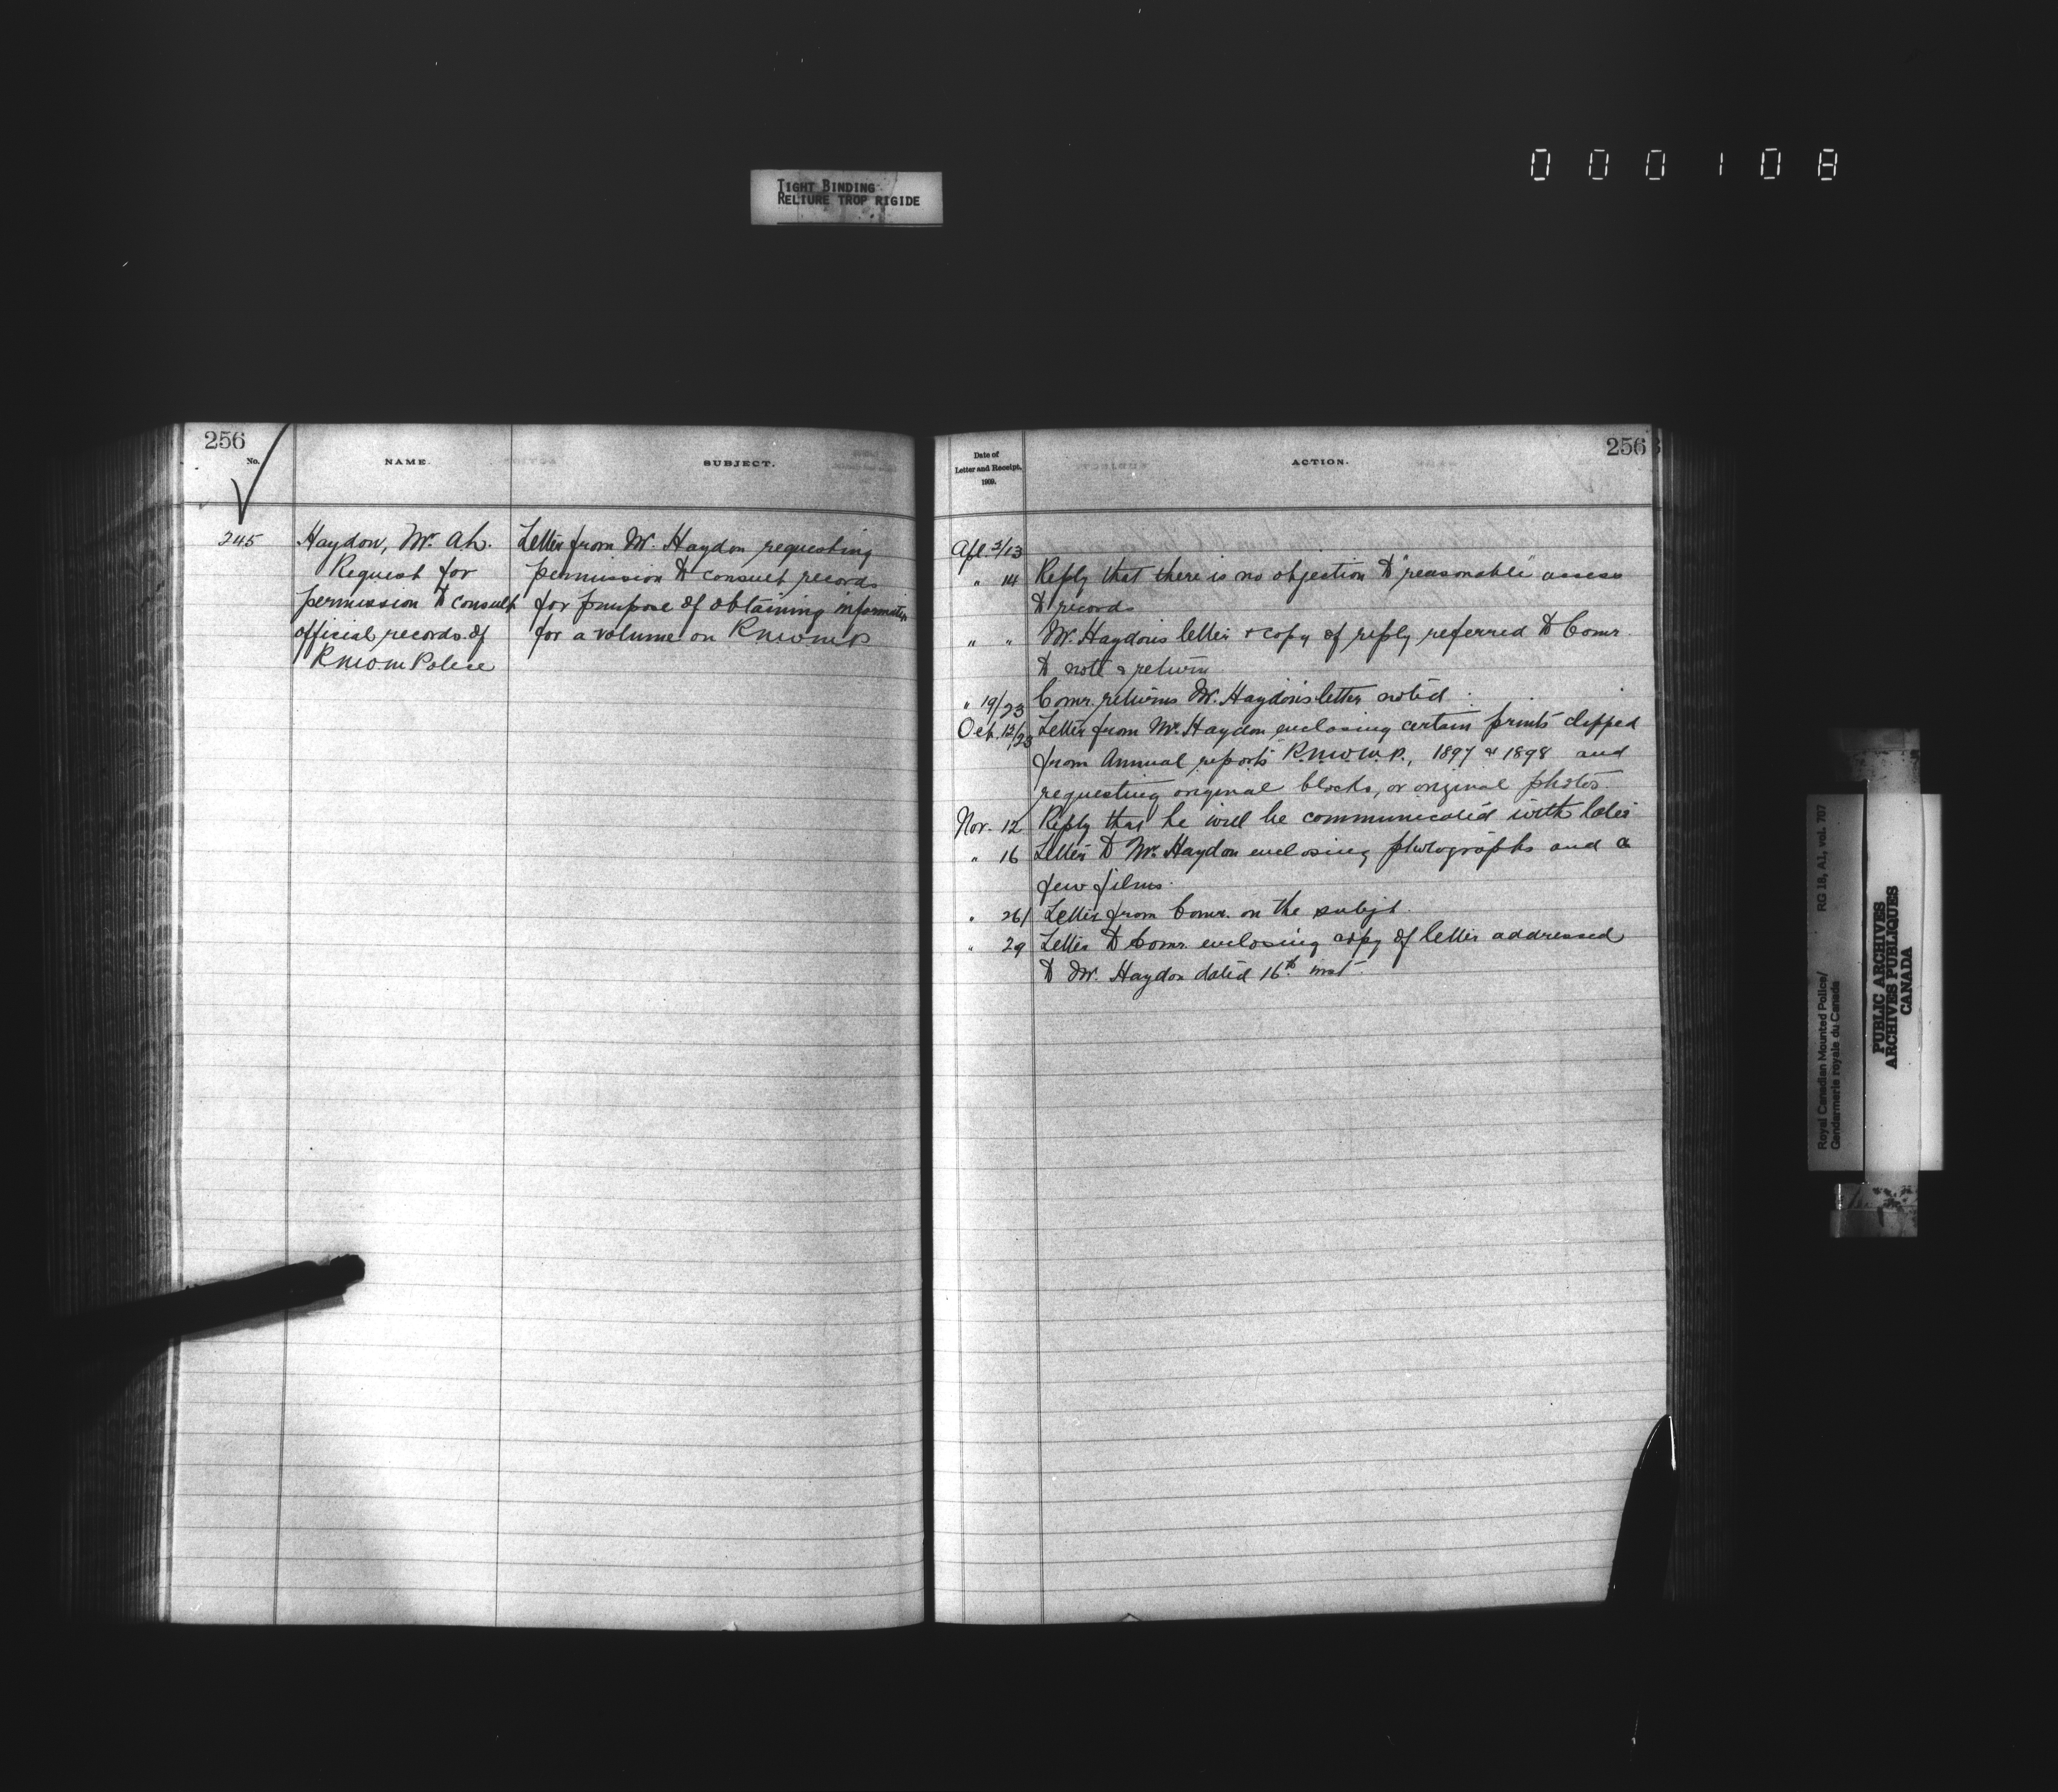 000108
TIGHT BINDING
RELIURE TROP RIGIDE
256
No.
NAME.
SUBJECT.
245
Haydon, Mr. A.L.
Request for
permission to consult
official records of
R.N.W.M. Police
Letter from Mr. Haydon requesting
permission to consult records
for purpose of obtaining information
for a volume on R.N.W.M.P.
256
Date of
Letter and Receipt.
1909.
ACTION.
Apl. 3/13
" 14 Reply that there is no objection to "reasonable" access
to records
" " Mr. Haydon's letter & copy of reply referred to Comr.
to note & return
" 19/23 Comr. returns Mr. Haydon's letter noted.
Oct. 12/23 Letter from Mr. Haydon enclosing certain prints clipped
from Annual reports R.N.W.M.P., 1897 & 1898 and
requesting original blocks, or original photos.
Nov. 12 Reply that he will be communicated with later
" 16 Letter to Mr. Haydon enclosing photographs and a
few films.
" 26/ Letter from Comr. on the subjt.
" 29 Letter to Comr. enclosing copy of letter addressed
to Mr. Haydon dated 16th inst.
Royal Canadian Mounted Police/
Gendarmerie royale du Canada
RG 18, A1, vol. 707
PUBLIC ARCHIVES
ARCHIVES PUBLIQUES
CANADA